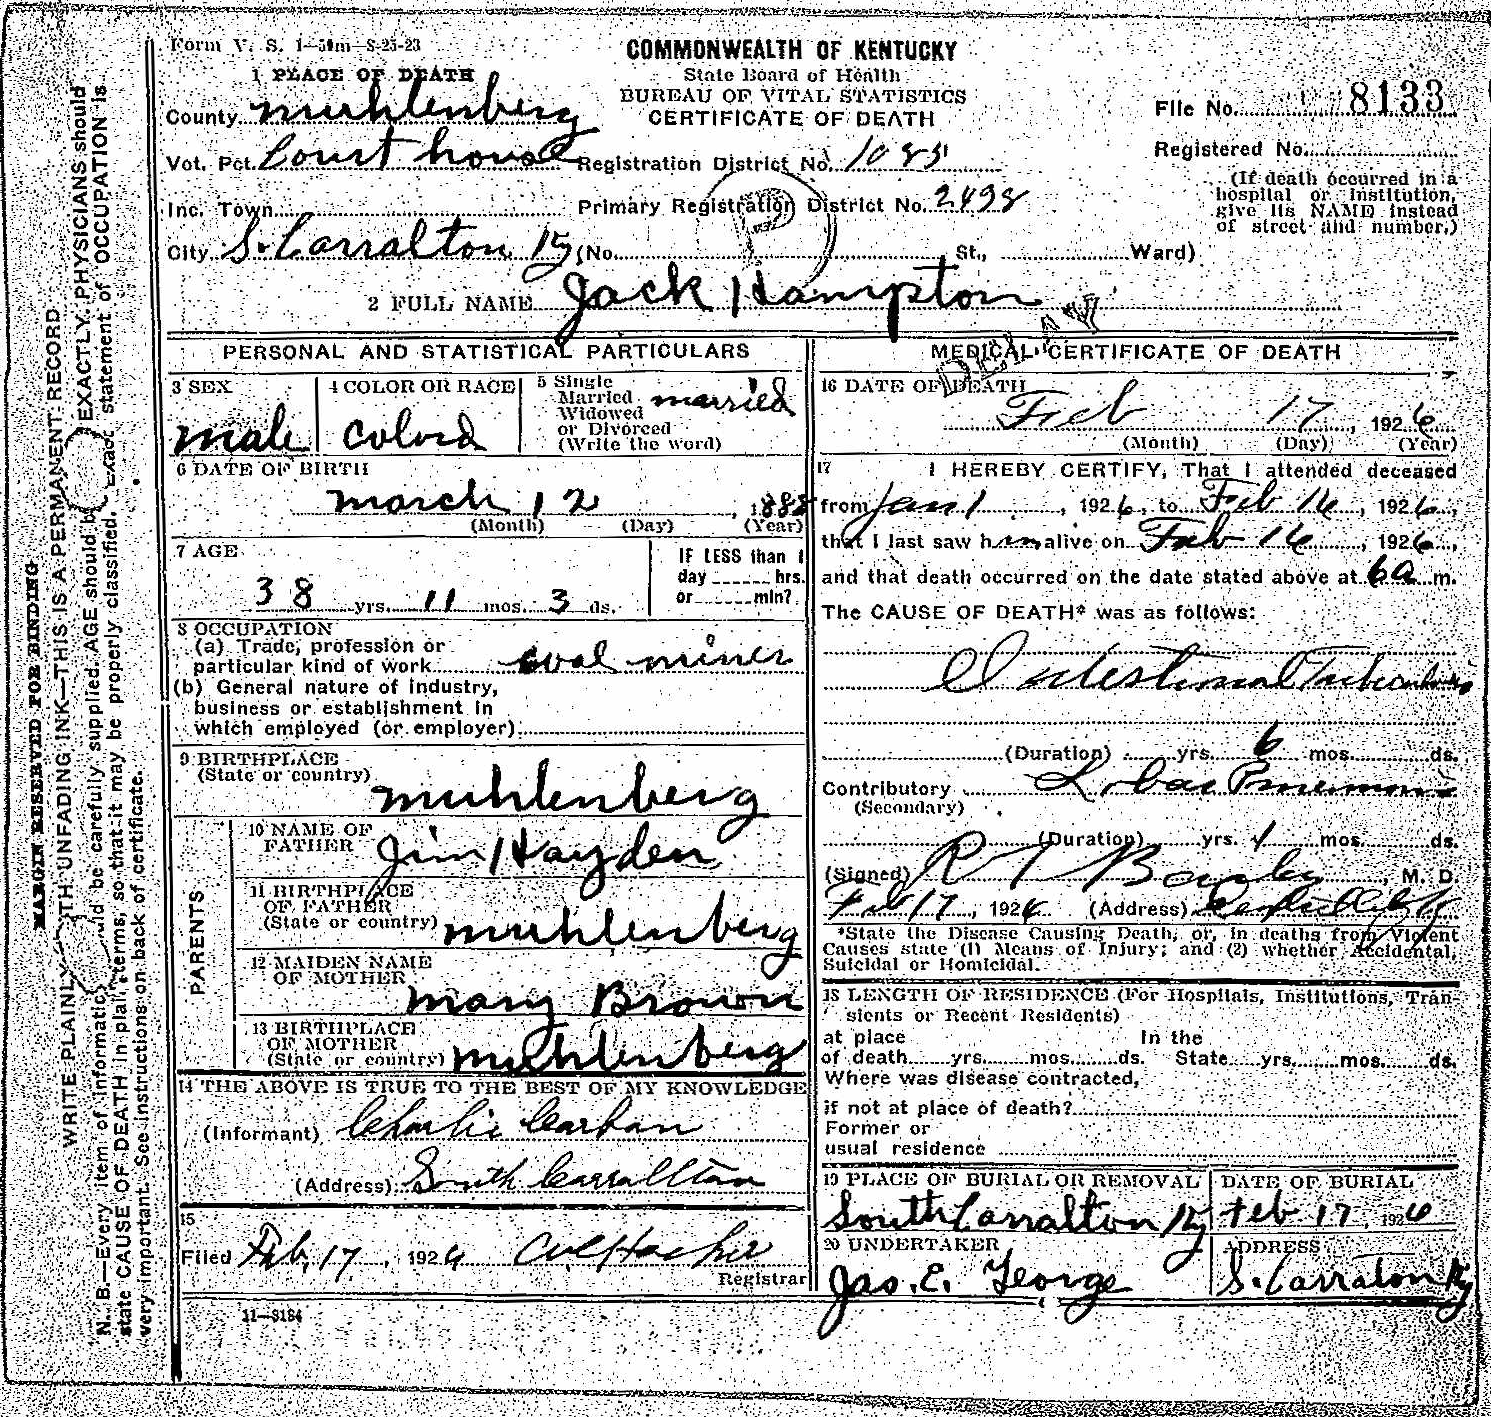 Form V. S. 1—50m—8-25-23
COMMONWEALTH OF KENTUCKY
State Board of Health
BUREAU OF VITAL STATISTICS
CERTIFICATE OF DEATH
File No. 8133
Registered No.
(If death occurred in a
hospital or institution,
give its NAME instead
of street and number.)
1 PLACE OF DEATH
County Muhlenberg
Vot. Pct. Court house Registration District No. 1085
Inc. Town Primary Registration District No. 2498
City S. Carralton Ky (No. St., Ward)
2 FULL NAME Jack Hampton
DELAY
PERSONAL AND STATISTICAL PARTICULARS
3 SEX
male
4 COLOR OR RACE
colord
5 Single
Married
Widowed
or Divorced
(Write the word)
married
6 DATE OF BIRTH
march 12, 1888
(Month) (Day) (Year)
7 AGE
38 yrs. 11 mos. 3 ds.
IF LESS than 1
day hrs.
or min?
8 OCCUPATION
(a) Trade, profession or
particular kind of work coal miner
(b) General nature of industry,
business or establishment in
which employed (or employer)
9 BIRTHPLACE
(State or country)
muhlenberg
PARENTS
10 NAME OF
FATHER Jim Hayden
11 BIRTHPLACE
OF FATHER
(State or country) muhlenberg
12 MAIDEN NAME
OF MOTHER mary Brown
13 BIRTHPLACE
OF MOTHER
(State or country) muhlenberg
14 THE ABOVE IS TRUE TO THE BEST OF MY KNOWLEDGE
(Informant) Charlie
(Address) South Carrallton
15
Filed Feb. 17, 1926
Registrar
11—3184
MEDICAL CERTIFICATE OF DEATH
16 DATE OF DEATH
Feb 17, 1926
(Month) (Day) (Year)
17 I HEREBY CERTIFY, That I attended deceased
from Jan 1, 1926, to Feb 16, 1926,
that I last saw him alive on Feb 16, 1926,
and that death occurred on the date stated above at 6a m.
The CAUSE OF DEATH* was as follows:
Intestinal Tuberculosis
(Duration) yrs. 6 mos. ds.
Contributory Lobar Pneumonia
(Secondary)
(Duration) yrs. 1 mos. ds.
(Signed) R T, M. D.
Feb 17, 1926 (Address)
*State the Disease Causing Death, or, in deaths from Violent
Causes state (1) Means of Injury; and (2) whether Accidental,
Suicidal or Homicidal.
18 LENGTH OF RESIDENCE (For Hospitals, Institutions, Tran-
sients or Recent Residents)
at place In the
of death yrs. mos. ds. State yrs. mos. ds.
Where was disease contracted,
if not at place of death?
Former or
usual residence
19 PLACE OF BURIAL OR REMOVAL
South Carralton Ky
DATE OF BURIAL
Feb 17, 1926
20 UNDERTAKER
Jas. E. George
ADDRESS
S. Carralton Ky
MARGIN RESERVED FOR BINDING
WRITE PLAINLY WITH UNFADING INK—THIS IS A PERMANENT RECORD
N. B.—Every item of information should be carefully supplied. AGE should be EXACTLY. PHYSICIANS should
state CAUSE OF DEATH in plain terms, so that it may be properly classified. Exact statement of OCCUPATION is
very important. See instructions on back of certificate.